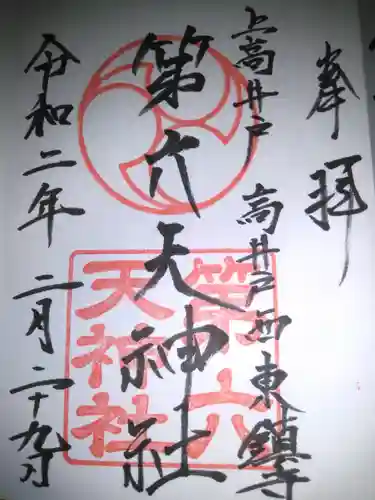 奉拝
上高井戸 高井戸西東鎮守
第六天神社
第六
天神社
令和二年 二月二十九日